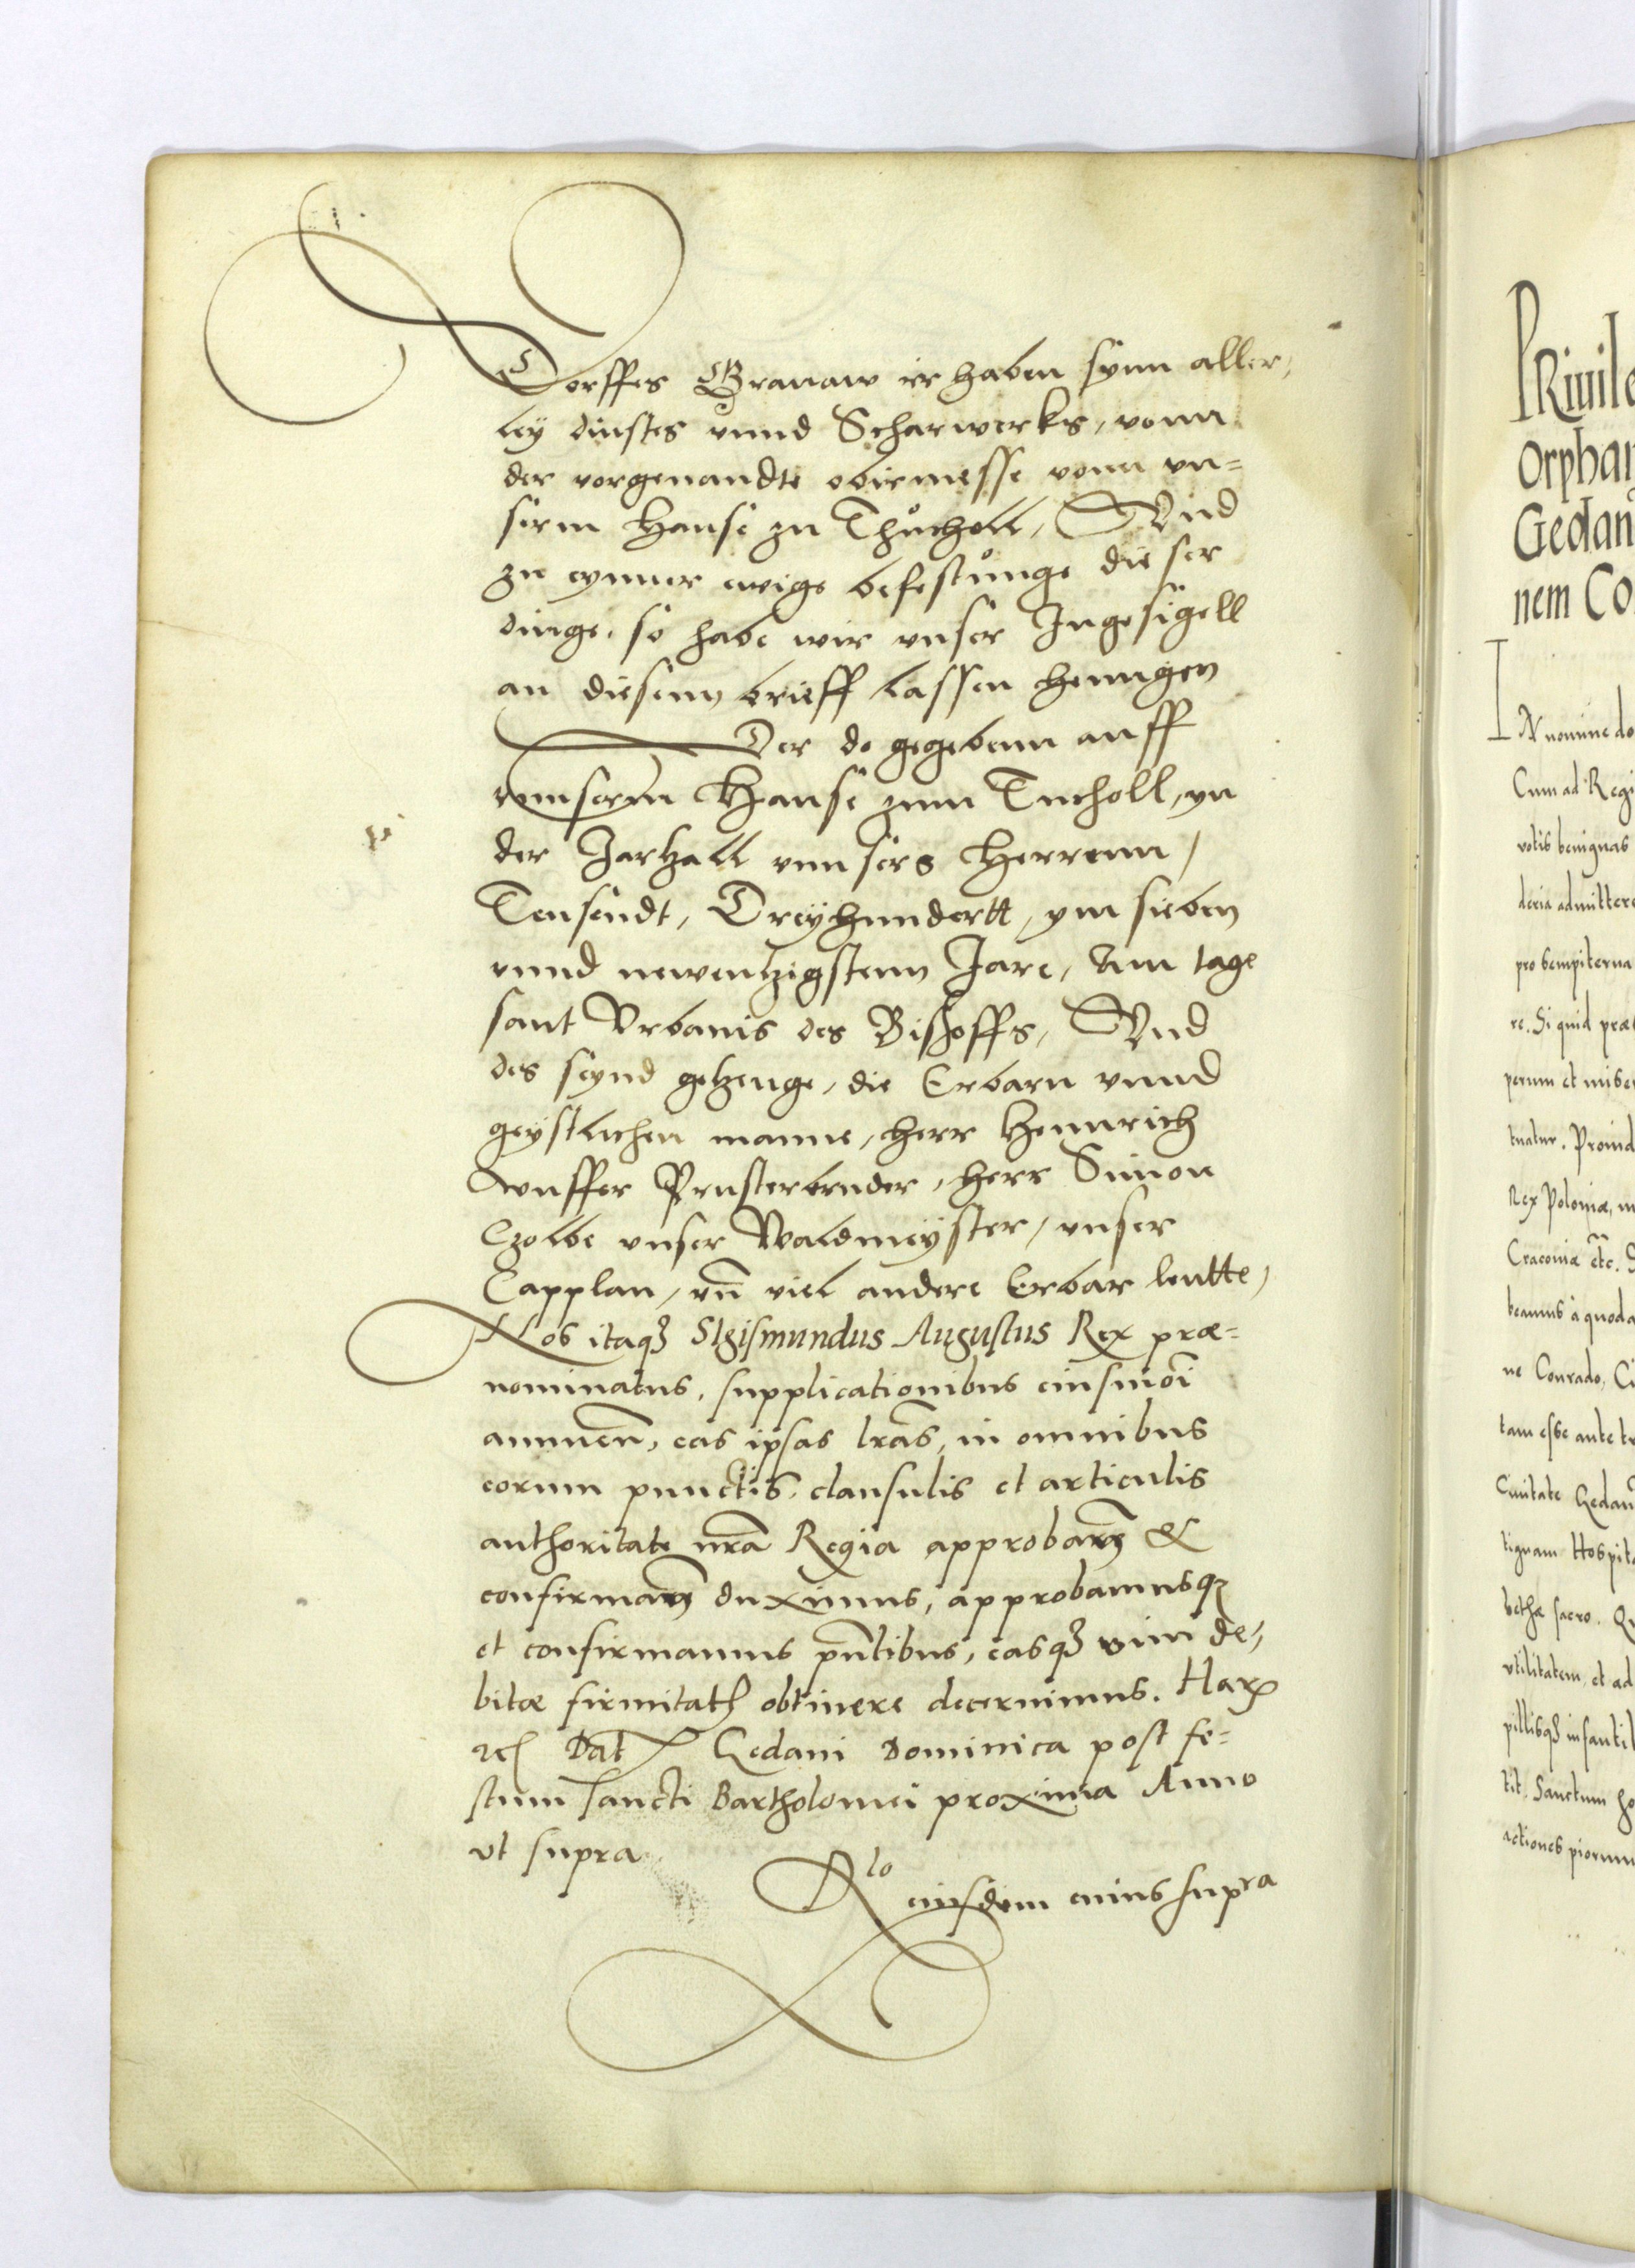 Dorffes Granaw irhaben synn aller,
ley dinstes vnnd Scharwerks, vonn
der vorgenandte obirmesse vonn vn=
serm Hause zu Thucholl, Vnd
zu eynner ewige befestunge dieser
dinge, so habe wir vnser Ingesigell
an diesenn brieff lassen henngen
Der do gegebenn auff
vnnserm Hause zum Tucholl, yn
der Jarzall vnnsers Herrenn,
Tausendt, Dreyhundertt, ym sieben
vnnd newentzigstenn Jare, Am tage
sant Vrbanis des Bishoffs, Vnd
des seynd getzeuge, die Erbarn vnnd
geystlichen manne, herr Hennrich
Prusterbruder, herr Simon
Czolbe vnser Waldmeyster, vnser
Capplan, vn̄ viel andere Erbar leutte,
Nos itaqꝫ Sigismundus Augustus Rex præ=
nominatus, supplicationibus eiusmo̅i
annuen̅, eas ipsas lr̅as, in omnibus
eorum punctis, clausulis et articulis
authoritate nr̅a Regia approban̅ &
confirman̅ duximus, approbamusqꝫ
et confirmamus pn̅tibus, easqꝫ vim de,
bitæ firmitatꝭ obtinere decernimus. Harꝝ
Dat̅ Gedani Dominica post fe=
stum sancti Bartholomei proxima Anno
vt supra
R͞lo eiusdem cuius supra
PRiuile
Orphan
Gedan
nem Co
IN nomine do
Cum ad Regi
votis benignas
deria admittere
pro sempiterna
re. Si quid præ
perum et mise
tuatur. Proind
Rex Poloniæ, m
Cracoviæ etc. S
beamus à quoda
ne Conrado, Ci
tam esse ante tr
Ciuitate Gedan̅
tiquam Hospita
bethæ sacro. Q
vtilitatem, et ad
pillisqꝫ infanti
tit. Sanctum ho
actiones piorum